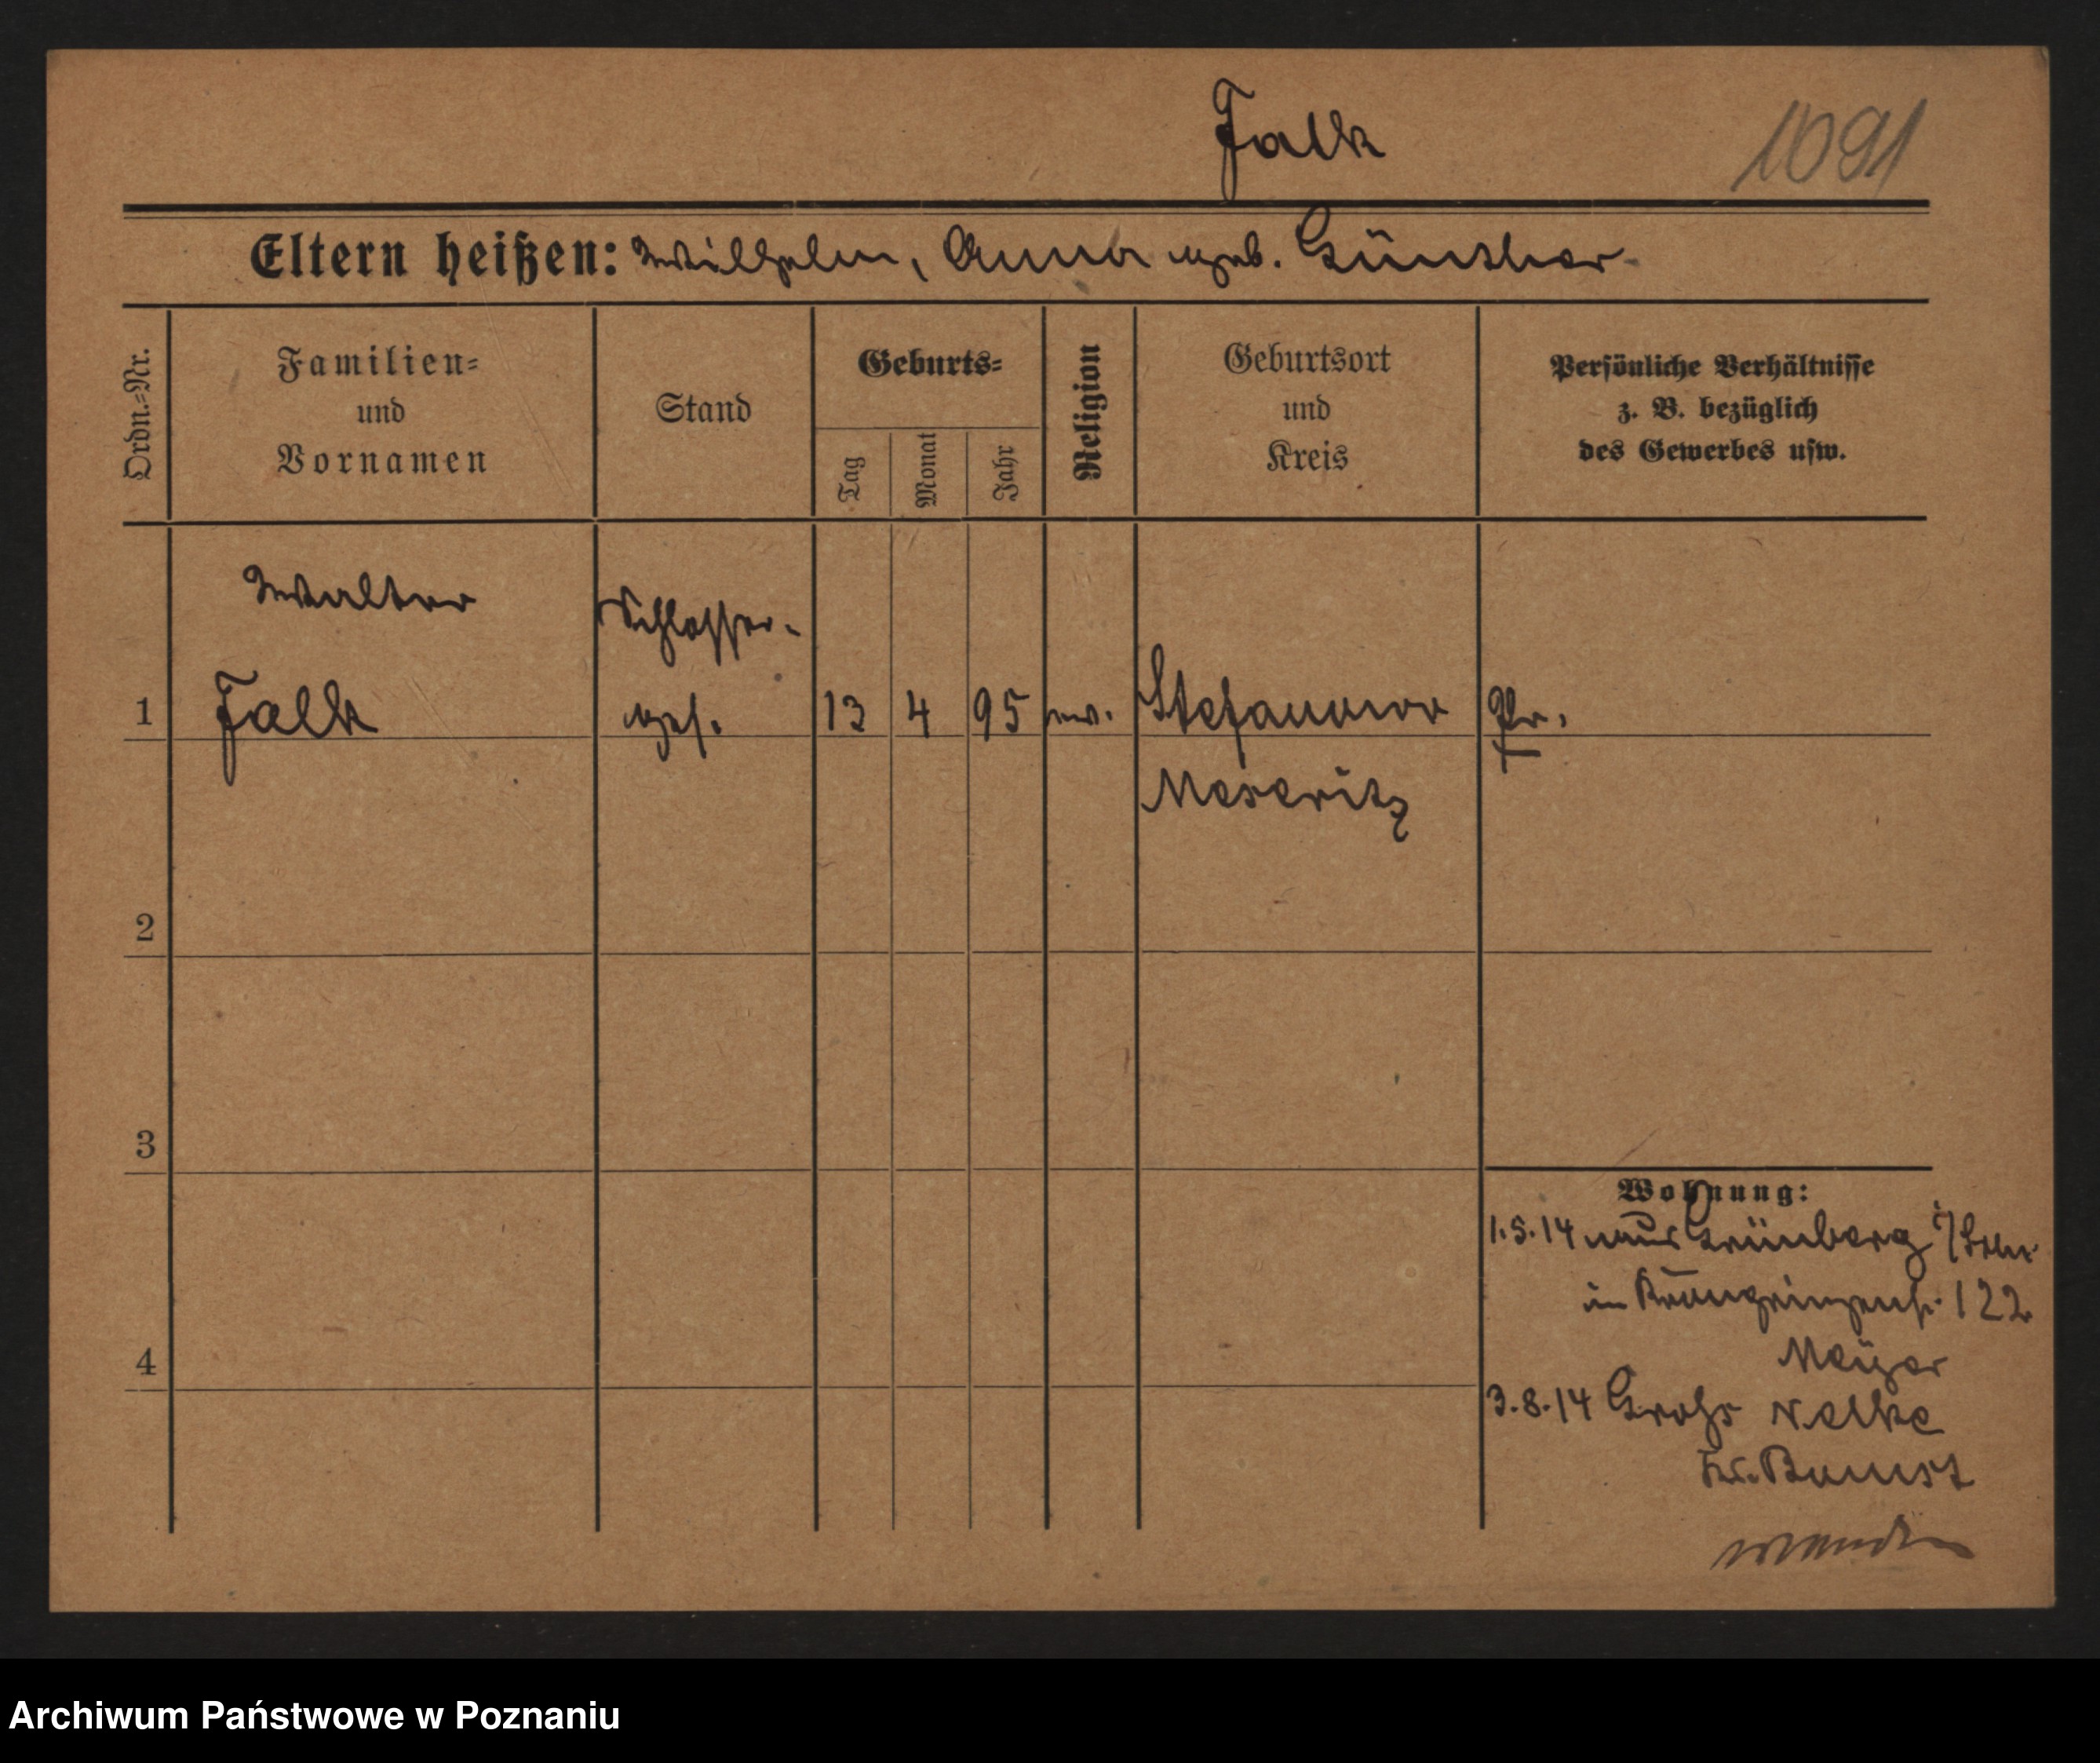 Falk
1091
Eltern heißen: Wilhelm, Anna geb. Günther.
Ordn.=Nr.
Familien=
und
Vornamen
Stand
Geburts=
Tag
Monat
Jahr
Religion
Geburtsort
und
Kreis
Persönliche Verhältnisse
z. B. bezüglich
des Gewerbes usw.
Walter
Schlosser-
1 Falk ges. 13 4 95 ev. Stefanowo Pr.
Meseritz
2
3
4
Wohnung:
1.5.14 aus Grünberg i/Schl.
in Kronprinzenstr. 122
Meyer
3.8.14 Gross Nelke
Kr. Bomst
Archiwum Państwowe w Poznaniu